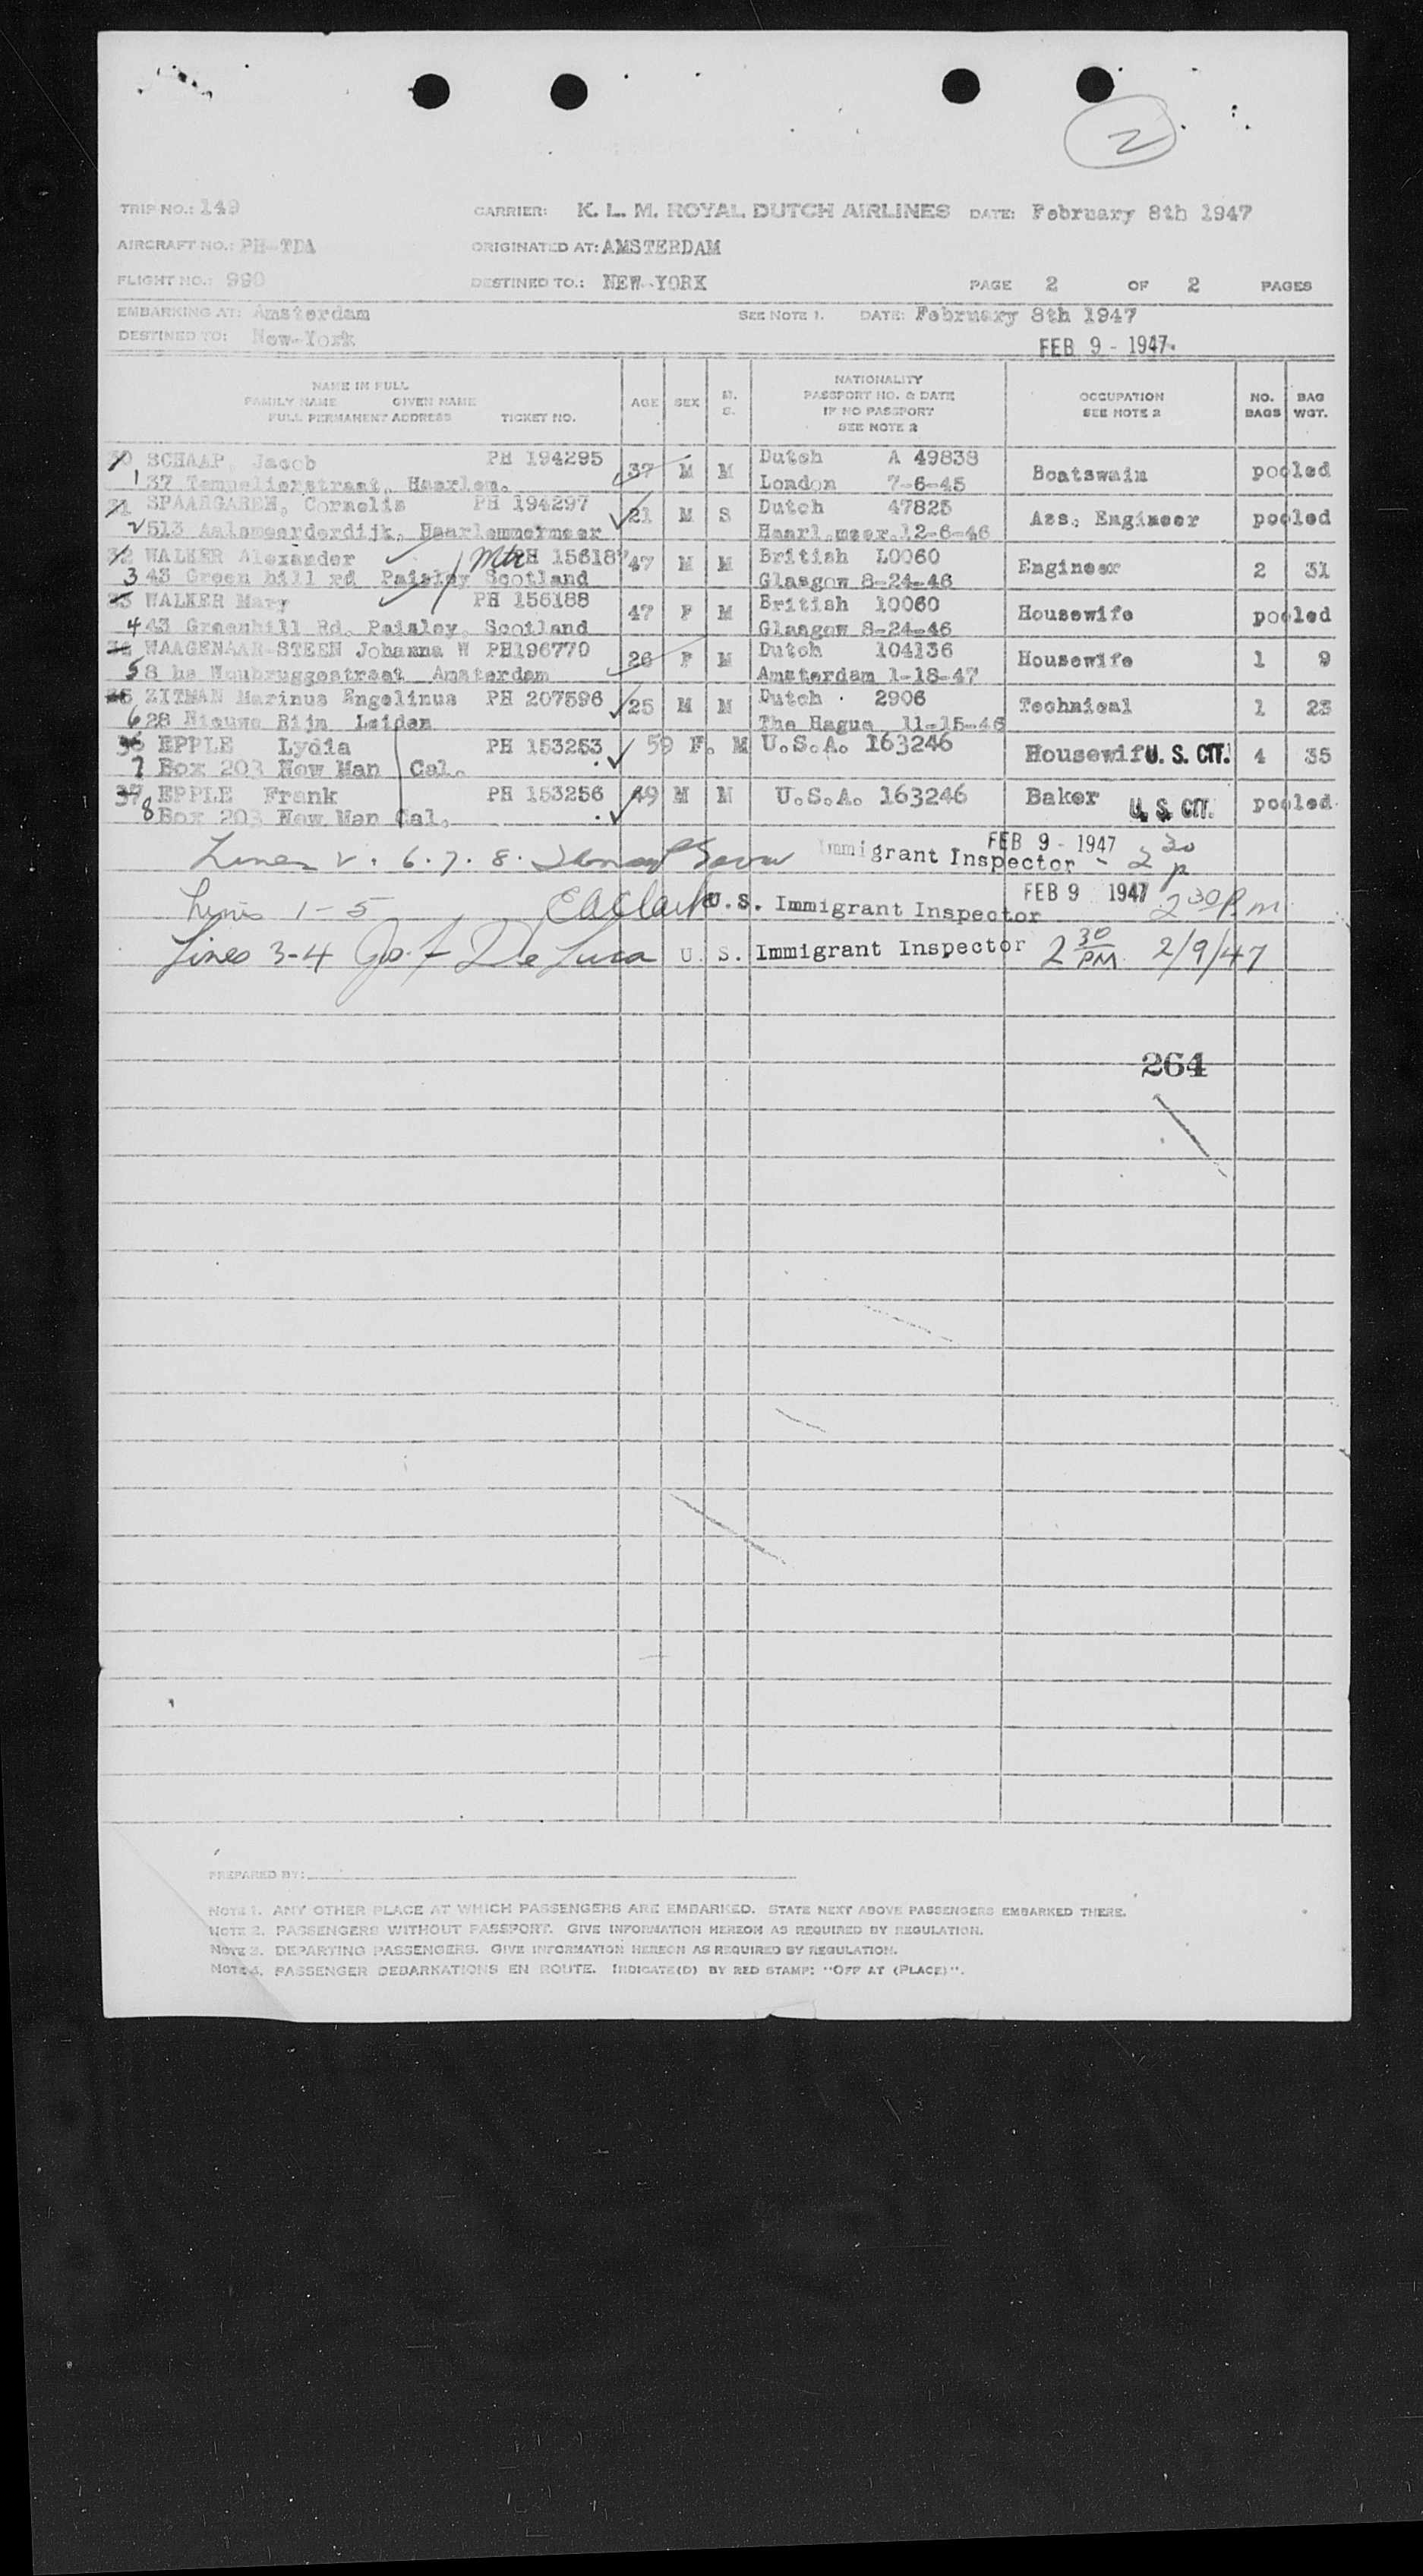 2
TRIP NO.: 149 CARRIER: K. L. M. ROYAL DUTCH AIRLINES DATE: February 8th 1947
AIRCRAFT NO.: PH-TDA ORIGINATED AT: AMSTERDAM
FLIGHT NO.: 990 DESTINED TO.: NEW-YORK PAGE 2 OF 2 PAGES
EMBARKING AT: Amsterdam SEE NOTE 1. DATE: February 8th 1947
DESTINED TO: New-York FEB 9 - 1947
NAME IN FULL
FAMILY NAME GIVEN NAME
FULL PERMANENT ADDRESS TICKET NO. AGE SEX M. S. NATIONALITY PASSPORT NO. & DATE IF NO PASSPORT SEE NOTE 2 OCCUPATION SEE NOTE 2 NO. BAGS BAG WGT.
30 SCHAAP, Jacob PH 194295 37 M M Dutch A 49838 Boatswain pooled
1 37 Tennelierstraat, Haarlem. London 7-6-45
31 SPAARGAREN, Cornelis PH 194297 21 M S Dutch 47825 Ass. Engineer pooled
2 513 Aalsmeerderdijk, Haarlemmermeer Haarl.meer.12-6-46
32 WALKER Alexander PH 156187 47 M M British L0060 Engineer 2 31
3 43 Green hill rd Paisley Scotland Glasgow 8-24-46
33 WALKER Mary PH 156188 47 F M British 10060 Housewife pooled
4 43 Greenhill Rd. Paisley, Scotland Glasgow 8-24-46
34 WAAGENAAR-STEEN Johanna W PH196770 26 F M Dutch 104136 Housewife 1 9
5 8 hs Woubruggestraat Amsterdam Amsterdam 1-18-47
35 ZITMAN Marinus Engelinus PH 207596 25 M M Dutch 2906 Technical 1 23
6 28 Nieuwe Rijn Leiden The Hague 11-15-46
36 EPPLE Lydia PH 153253 59 F. M U.S.A. 163246 Housewife U. S. CIT. 4 35
7 Box 203 New Man Cal.
37 EPPLE Frank PH 153256 49 M M U.S.A. 163246 Baker U. S. CIT. pooled
8 Box 203 New Man Cal.
Lines 2. 6. 7. 8. Immigrant Inspector FEB 9 - 1947 2 30 p
Lines 1-5 E A Clark U. S. Immigrant Inspector FEB 9 1947 2 30 P m
Lines 3-4 Jos. F De Luca U. S. Immigrant Inspector 2 30 PM 2/9/47
264
PREPARED BY:
NOTE 1. ANY OTHER PLACE AT WHICH PASSENGERS ARE EMBARKED. STATE NEXT ABOVE PASSENGERS EMBARKED THERE.
NOTE 2. PASSENGERS WITHOUT PASSPORT. GIVE INFORMATION HEREON AS REQUIRED BY REGULATION.
NOTE 3. DEPARTING PASSENGERS. GIVE INFORMATION HEREON AS REQUIRED BY REGULATION.
NOTE 4. PASSENGER DEBARKATIONS EN ROUTE. INDICATE(D) BY RED STAMP: "OFF AT (PLACE)".